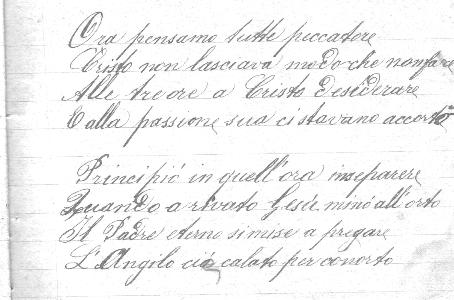 Ora pensamo tutte peccatore
Cristo non lasciava modo che non face
Alle tre ore a Cristo desiderare
E alla passione sua ci stavano accorto
Principió in quell'ora inseparere
Quando arivato Gesú nino all'orto
Il Padre eterno si mise a pregare
L'Angelo ció calato per conorto